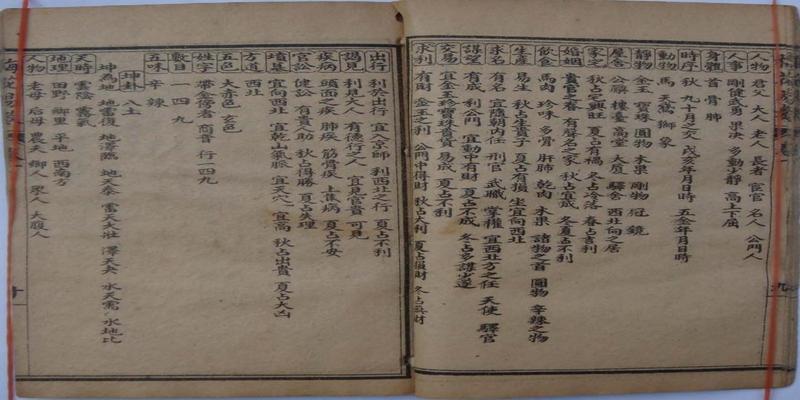 人物 君父 大人 老人 長者 宦官 名人 公門人
人事 剛健武勇 果決 多動少靜 高上下屈
身體 首 骨 肺
時序 秋 九十月之交 戌亥年月日時 五金年月日時
動物 馬 天鵞 獅 象
靜物 金玉 寶珠 圓物 木果 剛物 冠 鏡
屋舍 公廨 樓臺 高堂 大厦 驛舍 西北向之居
家宅 秋占宅興旺 夏占有禍 冬占冷落 春占吉利
婚姻 貴官之眷 有聲名之家 秋占宜成 冬夏占不利
飲食 馬肉 珍味 多骨 肝肺 乾肉 木果 諸物之首 圓物 辛辣之物
生產 易生 秋占生貴子 夏占有損 坐宜向西北
求名 有名 宜隨朝內任 刑官 武職 掌權 宜西北方之任 天使 驛官
謀望 有成 利公門 宜動中有財 夏占不成 冬占多謀少遂
交易 宜金玉珍寶珠貴貨 易成 夏占不利
求利 有財 金玉之利 公門中得財 秋占大利 夏占損財 冬占無財
出行 利於出行 宜入京師 利西北之行 夏占不利
謁見 利見大人 有德行之人 宜見官貴 可見
疾病 頭面之疾 肺疾 筋骨疾 上焦病 夏占不安
官訟 健訟 有貴人助 秋占得勝 夏占失理
墳墓 宜向西北 宜乾山氣脈 宜天穴 宜高 秋占出貴 夏占大凶
方道 西北
五色 大赤色 玄色
姓字 帶金傍者 商音 行一四九
數目 一 四 九
五味 辛 辣
坤卦 八土
坤為地 地雷復 地澤臨 地天泰 雷天大壯 澤天夬 水天需 水地比
天時 雲陰 霧氣
地理 田野 鄉里 平地 西南方
人物 老母 后母 農人 鄉人 眾人 大腹人